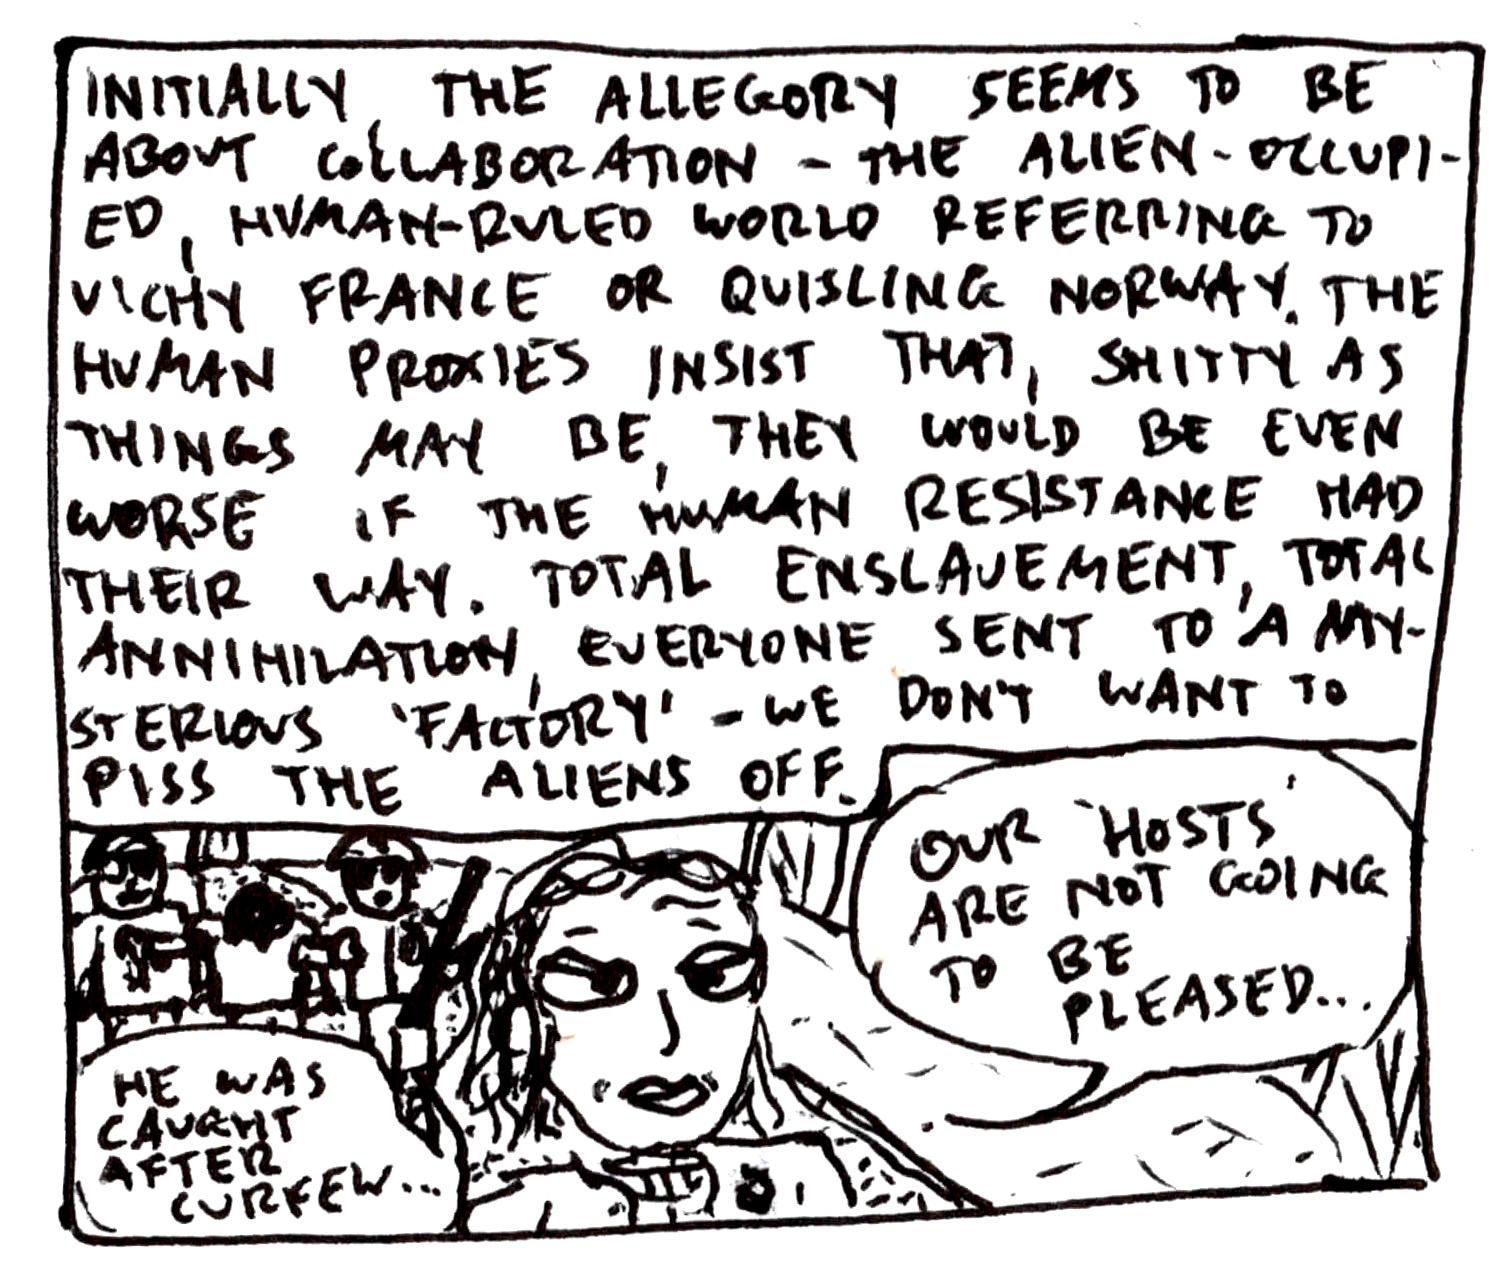 INITIALLY, THE ALLEGORY SEEMS TO BE
ABOUT COLLABORATION - THE ALIEN-OCCUPI-
ED, HUMAN-RULED WORLD REFERRING TO
VICHY FRANCE OR QUISLING NORWAY. THE
HUMAN PROXIES INSIST THAT, SHITTY AS
THINGS MAY BE, THEY WOULD BE EVEN
WORSE IF THE HUMAN RESISTANCE HAD
THEIR WAY. TOTAL ENSLAVEMENT, TOTAL
ANNIHILATION, EVERYONE SENT TO A MY-
STERIOUS 'FACTORY' - WE DON'T WANT TO
PISS THE ALIENS OFF.
OUR 'HOSTS'
ARE NOT GOING
TO BE
PLEASED...
HE WAS
CAUGHT
AFTER
CURFEW...